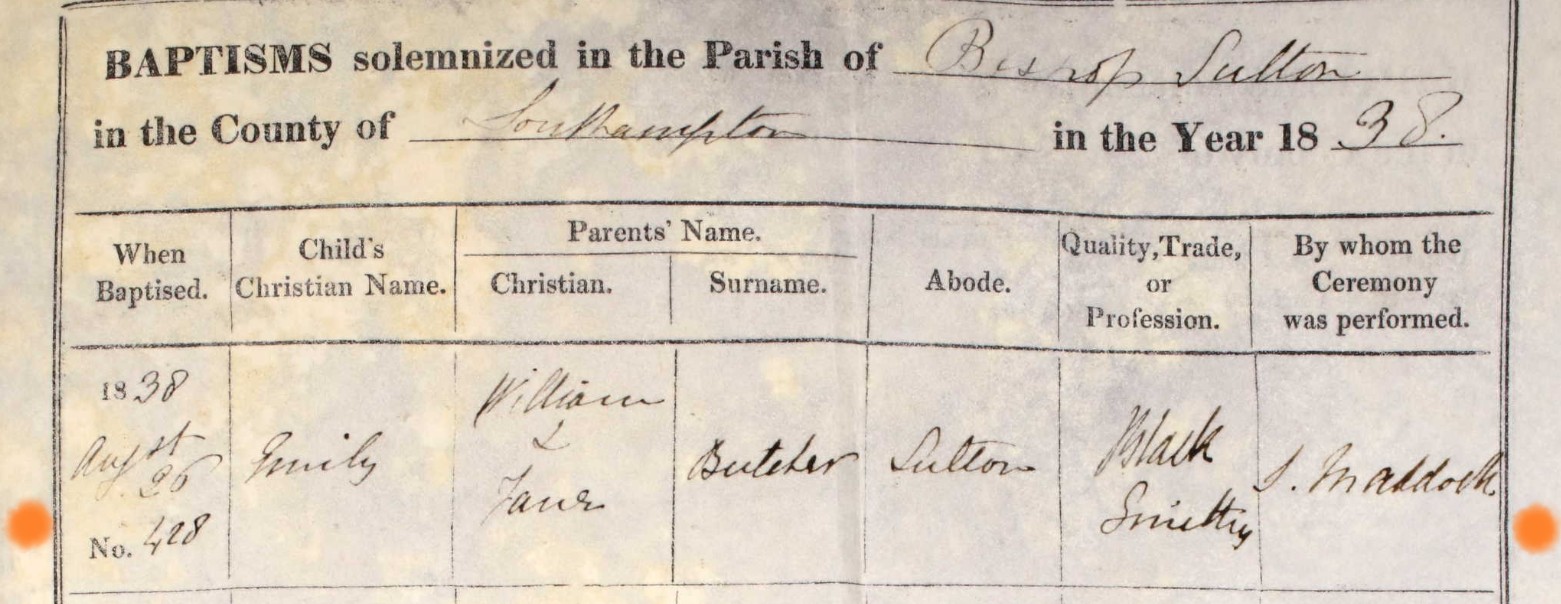 BAPTISMS solemnized in the Parish of Bishop Sutton
in the County of Southampton in the Year 18 38.
When Baptised.
Child's Christian Name.
Parents' Name.
Christian.
Surname.
Abode.
Quality, Trade, or Profession.
By whom the Ceremony was performed.
1838
Augst
26
No. 428
Emily
William
&
Jane
Butcher
Sutton
Black
S. Maddock